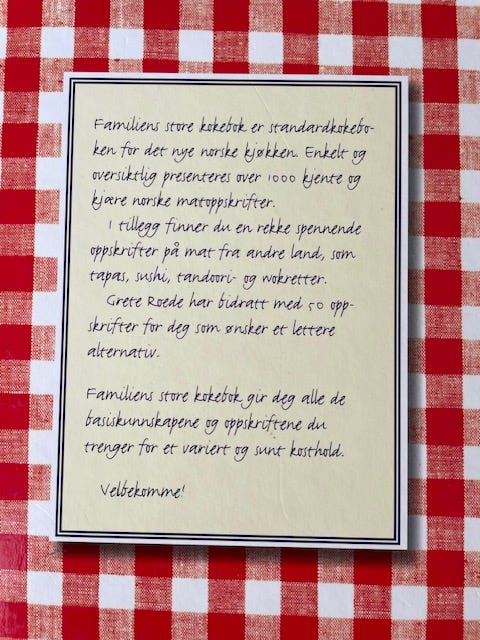 Familiens store kokebok er standardkokebo-
ken for det nye norske kjøkken. Enkelt og
oversiktlig presenteres over 1000 kjente og
kjære norske matoppskrifter.
I tillegg finner du en rekke spennende
oppskrifter på mat fra andre land, som
tapas, sushi, tandoori- og wokretter.
Grete Roede har bidratt med 50 opp-
skrifter for deg som ønsker et lettere
alternativ.
Familiens store kokebok gir deg alle de
basiskunnskapene og oppskriftene du
trenger for et variert og sunt kosthold.
Velbekomme!